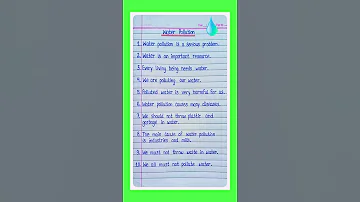 Water Pollution
1. Water pollution is a serious problem.
2. Water is an important resource.
3. Every living being needs water.
4. We are polluting our water.
5. Polluted water is very harmful for us.
6. Water pollution causes many diseases.
7. We should not throw plastic and
garbage in water.
8. The main cause of water pollution
is industries and mills.
9. We must not throw waste in water.
10. We all must not pollute water.